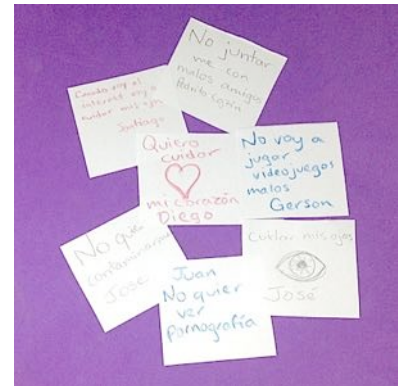 No juntar
me con
malos amigos
Cuando voy al
internet voy a
cuidar mis ojos
Santiago
Quiero
cuidar
mi corazón
Diego
No voy a
jugar
videojuegos
malos
Gerson
No
contaminarme
José
Cuidar mis ojos
José
Juan
No quier
ver
Pornografía